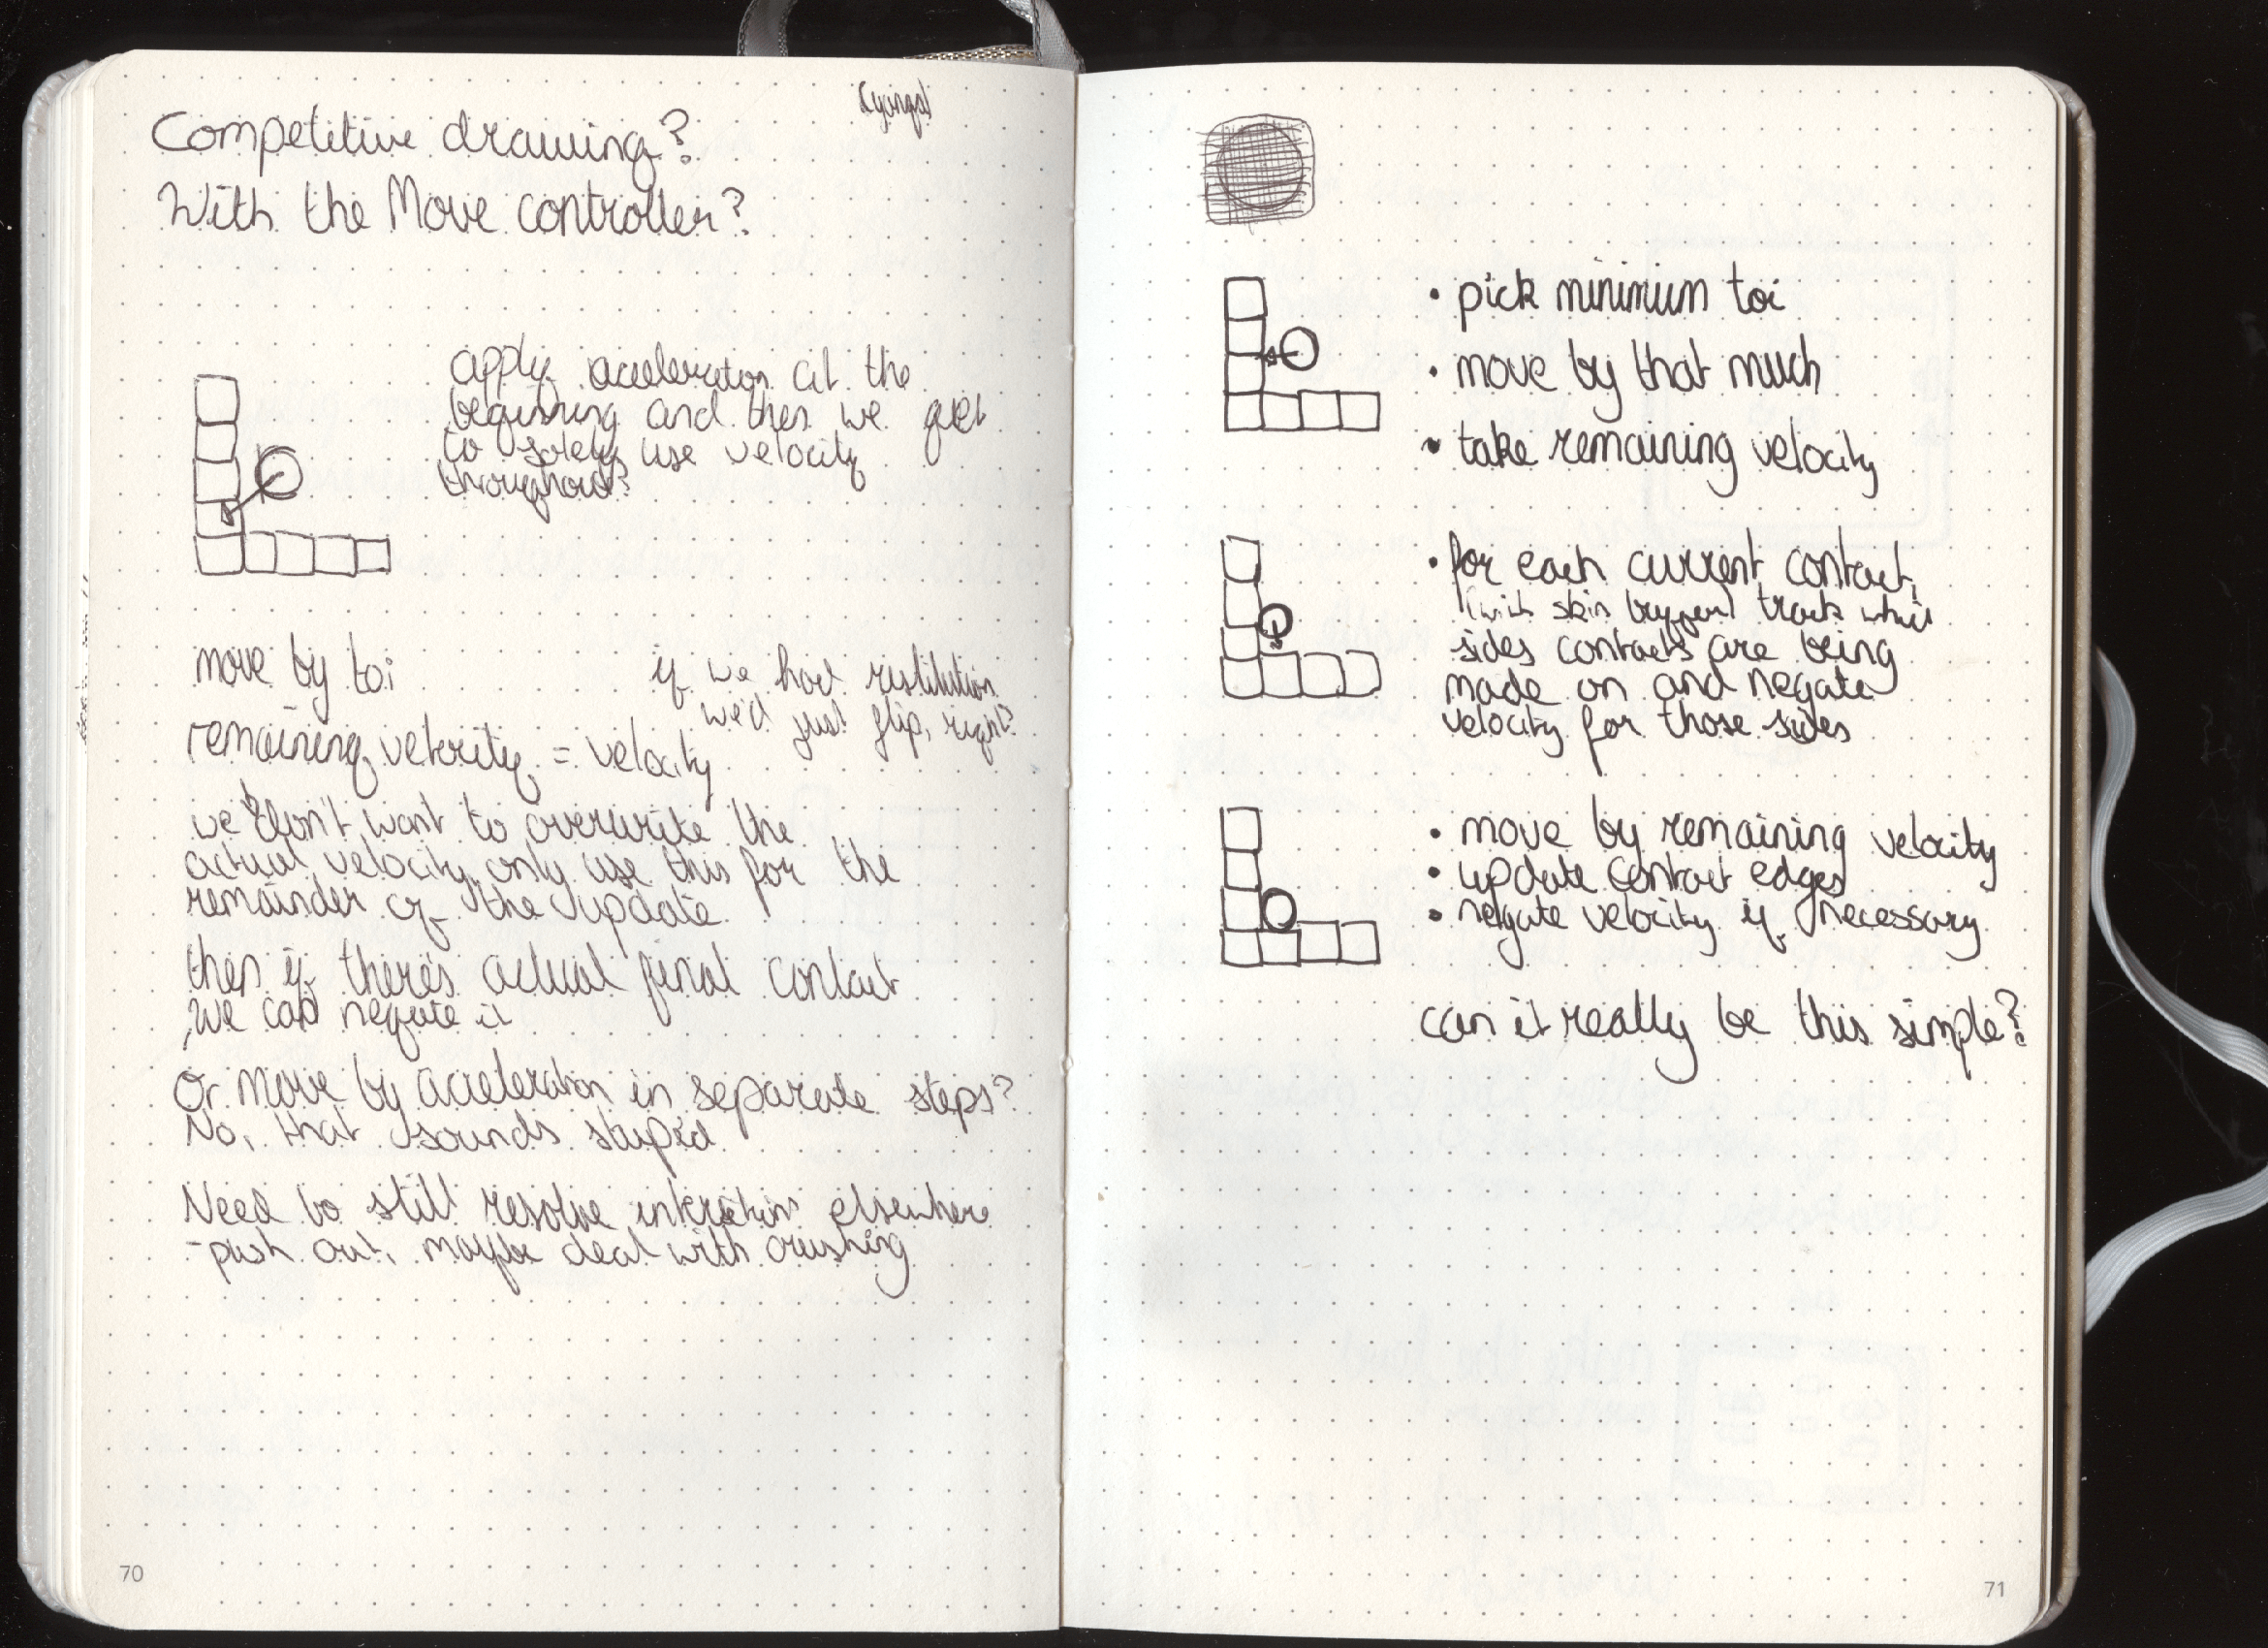 Competitive drawing?
With the Move controller?
apply acceleration at the
beginning and then we get
to solely use velocity
throughout?
move by toi
if we had restitution
we'd just flip, right?
remaining velocity = velocity
we don't want to overwrite the
actual velocity only use this for the
remainder of the update
then if there's actual final contact
we can negate it
Or move by acceleration in separate steps?
No, that sounds stupid
Need to still resolve elsewhere
- push out, maybe deal with crushing
70
• pick minimum toi
• move by that much
• take remaining velocity
• for each current contact,
(with skin buffer) track which
sides contacts are being
made on and negate
velocity for those sides
• move by remaining velocity
• update contact edges
• negate velocity if necessary
can it really be this simple?
71